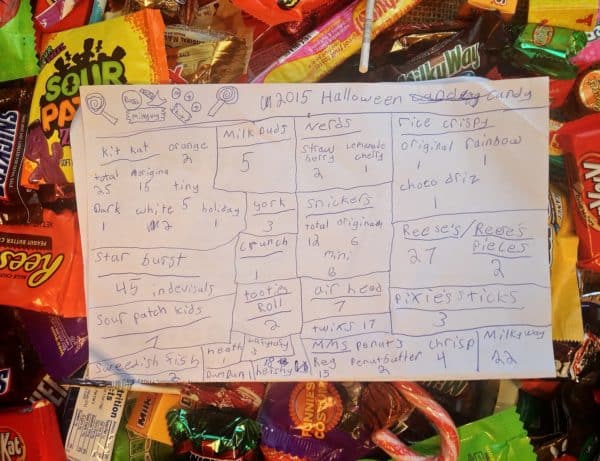 2015 Halloween candy
kit kat orange 2
total 25 origina 15 tiny 5
Dark 1 white 2 holiday 1
Milk Duds
5
Nerds
straw berry 2 Lemonade cherry 1
rice crispy
original 1 rainbow 1
choco driz
1
York
3
snickers
total 12 original 6
mini
6
Reese's 27
Reese's pieces 2
crunch
1
star burst
45 indevisuls
sour patch kids
tootie Roll
2
air head
7
twixs 17
pixie's sticks
3
sweedish fish
2
heath
DumDum
MMS Reg 15 Penonuts Penutbutter 2 chrisp 4
Milkyway
22
SOUR PATCH
Milky Way
Reese's
PEANUT BUTTER
Kat